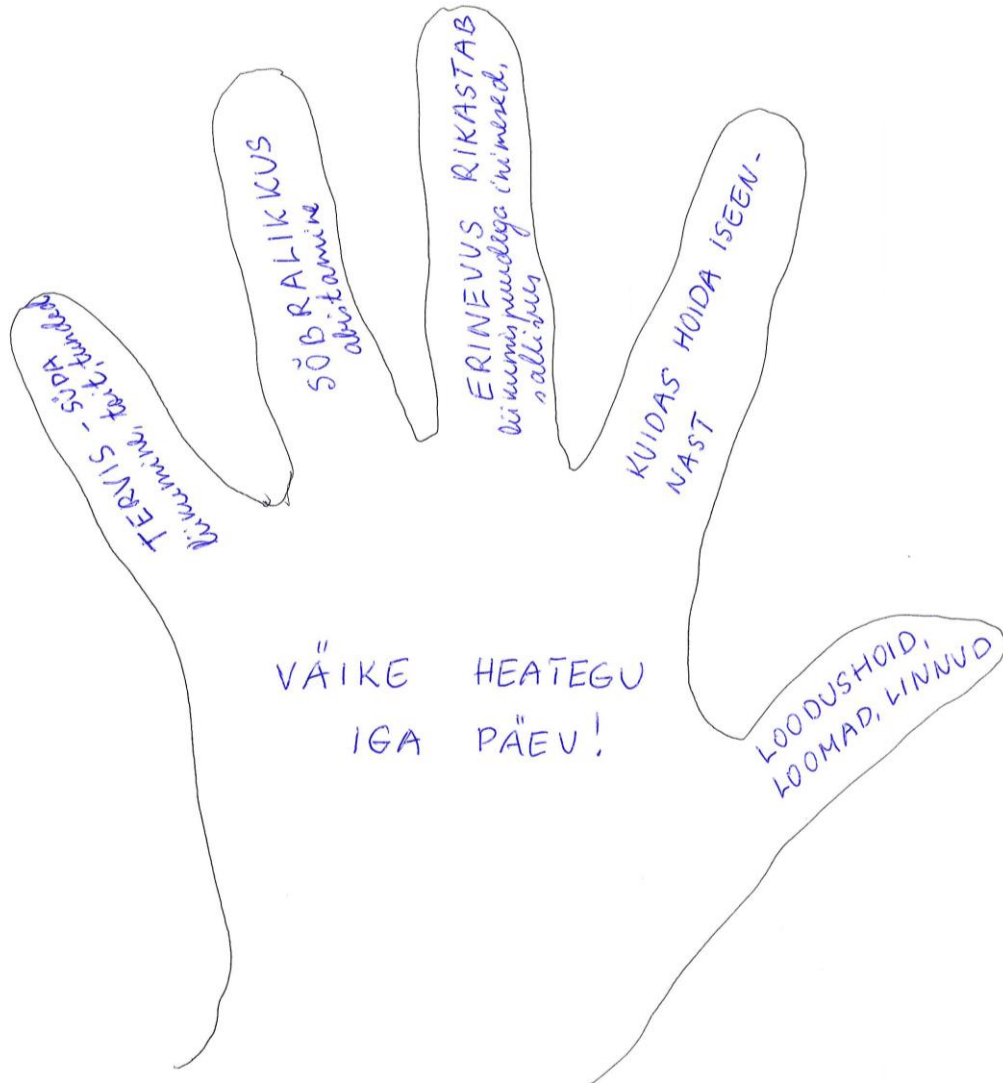 TERVIS - SÜDA
liikumine, toit, tunded
SÕBRALIKKUS
abistamine
ERINEVUS RIKASTAB
liikumispuudega inimesed,
sallivus
KUIDAS HOIDA ISEEN-
NAST
LOODUSHOID,
LOOMAD, LINNUD
VÄIKE HEATEGU
IGA PÄEV!